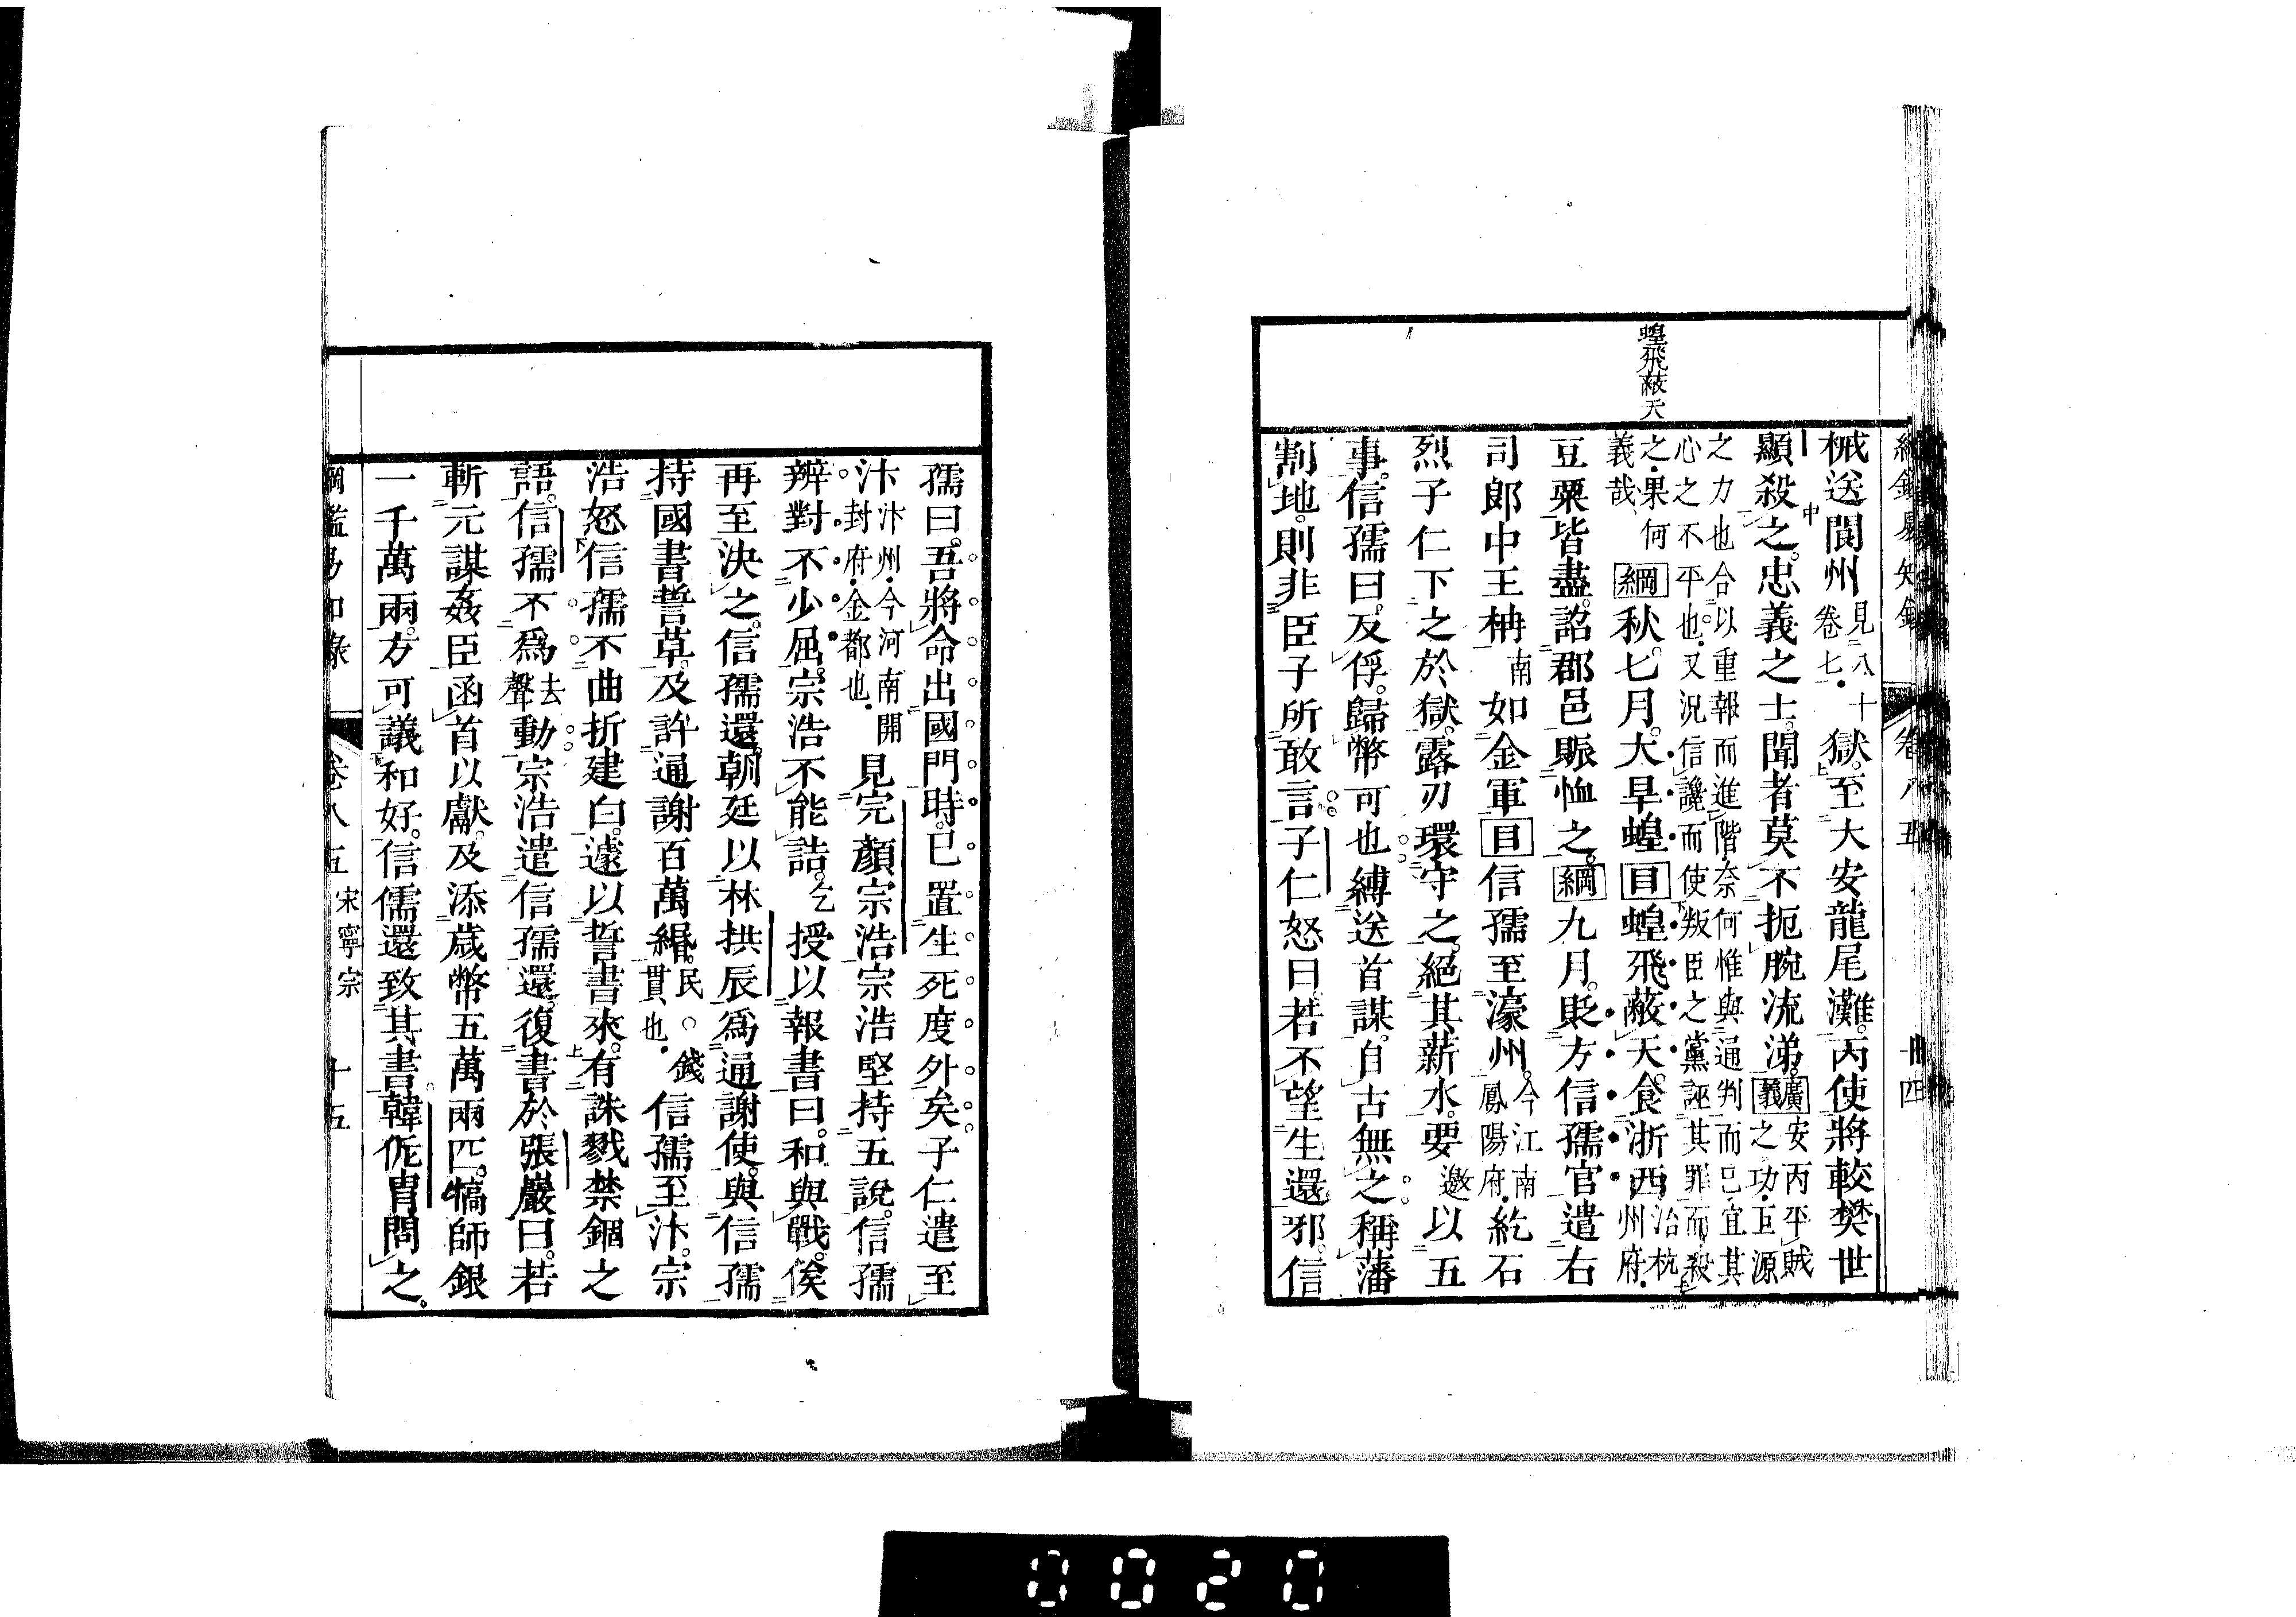 蝗飛蔽天
械送閬州見八十卷七獄至大安龍尾灘丙使將較樊世
顯殺之忠義之士聞者莫不扼腕流涕廣義安丙平賊之功巨源
之力也合以重報而進階奈何惟與通判而已宜其心之不平也又況信讒而使叛臣之黨誣其罪而殺
之果何義哉綱秋七月大旱蝗目蝗飛蔽天食浙西治杭州府
豆粟皆盡詔郡邑賑恤之綱九月貶方信孺官遣右
司郎中王柟南如金軍目信孺至濠州今江南鳳陽府紇石
烈子仁下之於獄露刃環守之絕其薪水要邀以五
事信孺曰反俘歸幣可也縛送首謀自古無之稱藩
割地則非臣子所敢言子仁怒曰若不望生還邪信
孺曰吾將命出國門時已置生死度外矣子仁遣至
汴汴州今河南開封府金都也見完顏宗浩宗浩堅持五說信孺
辨對不少屈宗浩不能詰乞授以報書曰和與戰俟
再至決之信孺還朝廷以林拱辰爲通謝使與信孺
持國書誓草及許通謝百萬緡民錢貫也信孺至汴宗
浩怒信孺不曲折建白遽以誓書來有誅戮禁錮之
語信孺不爲去聲動宗浩遣信孺還復書於張巖曰若
斬元謀姦臣函首以獻及添歲幣五萬兩匹犒師銀
一千萬兩方可議和好信儒還致其書韓侂冑問之
綱鑑易知錄 卷八五 宋寧宗 十五
0020